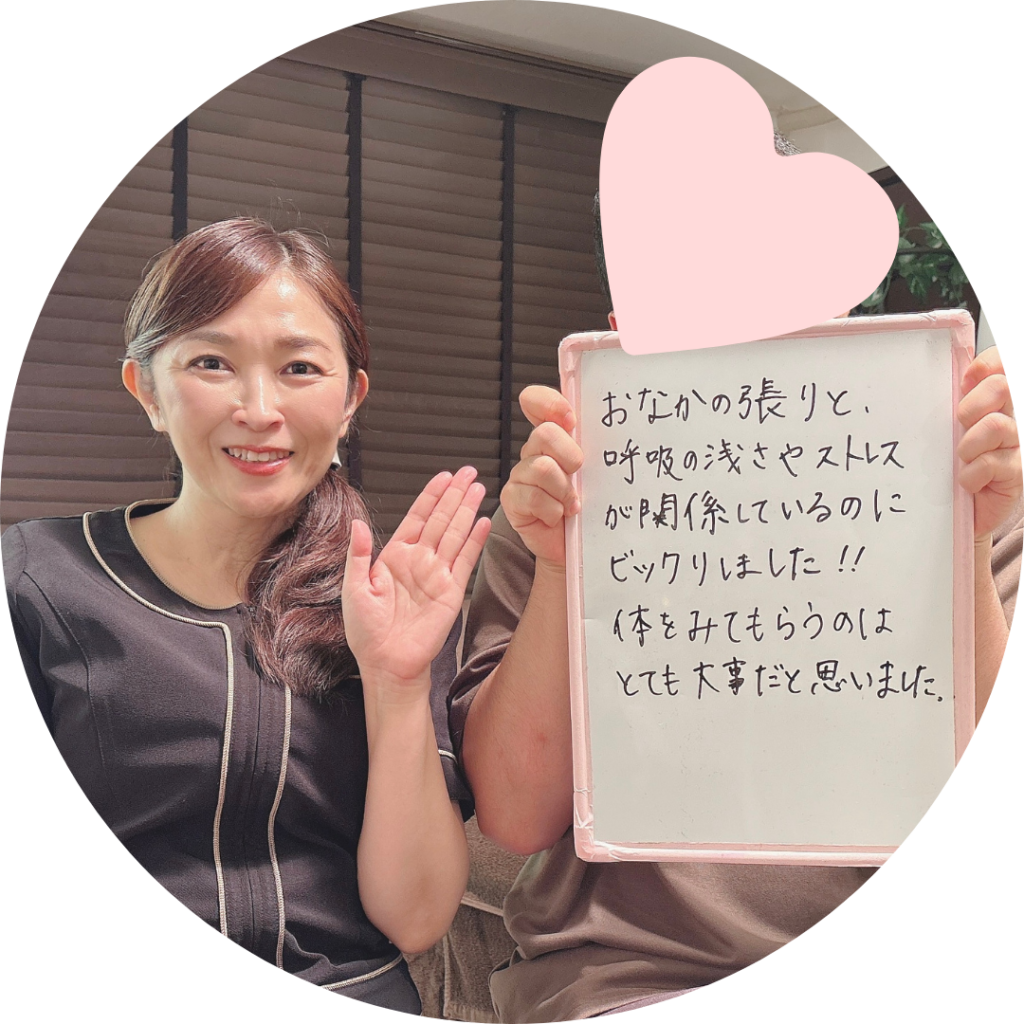 おなかの張りと、
呼吸の浅さやストレス
が関係しているのに
ビックリしました!!
体をみてもらうのは
とても大事だと思いました。